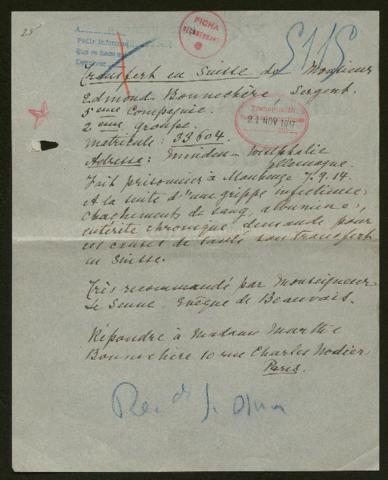 25
FICHA
Pedir informes
S115
Transfert en Suisse de Monsieur
Edmond Bonnechère Sergent.
5ème Compagnie.
2ème Groupe.
Matricule: 33604.
Adresse: Minden Westphalie
Allemagne.
24 NOV 1917
Fait prisonnier à Maubeuge 7.9.14.
A la suite d'une grippe infectieuse,
crachements de sang, albumine,
entérite chronique, demande pour
cet causes de santé son transfert
en Suisse.
Très recommandé par Monseigneur
Le Senne. Evêque de Beauvais.
Répondre à Madame Marthe
Bonnechère 10 rue Charles Nodier
Paris.